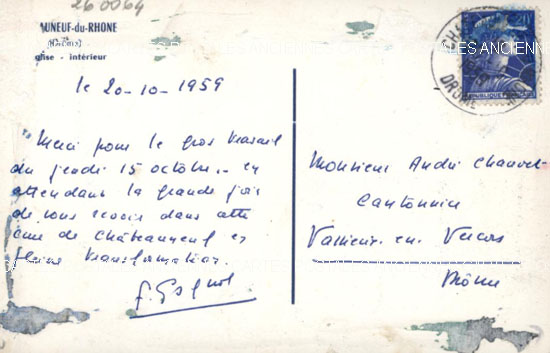 260064
AUNEUF-du-RHONE
(Drôme)
glise - intérieur
le 20-10-1959
"Merci pour le gros travail
du jeudi 15 octobre.. en
attendant la grande joie
de vous revoir dans cette
cure de Châteauneuf en
pleine transformation.
Monsieur André Chauvet
Cantonnier
Vassieux-en-Vercors
Drôme
20F
REPUBLIQUE FRANCAISE
DROME
CARTES ANCIENNES